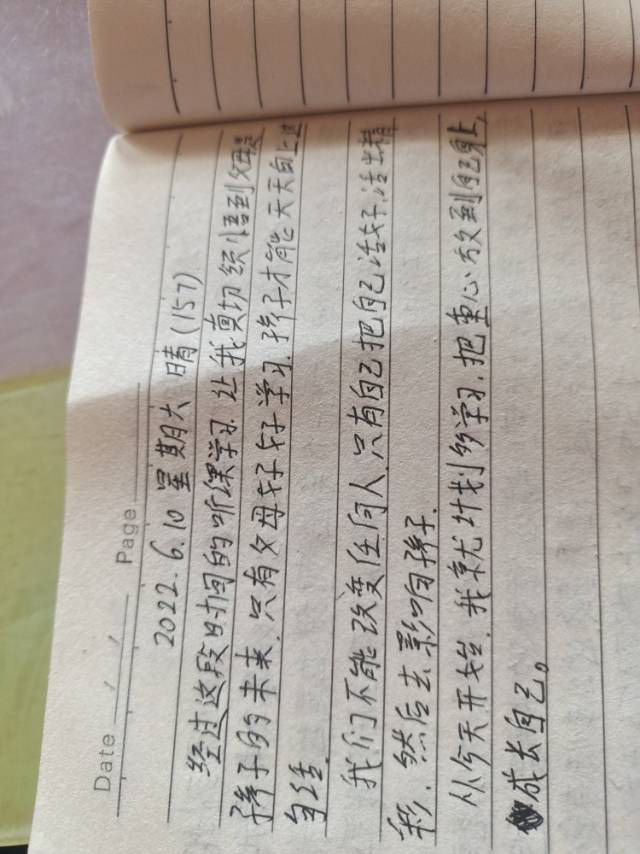 Date / / Page
2022.6.10 星期六 晴(157)
经过这段时间的听课学习,让我真切领悟到父母是
孩子的未来.只有父母好好学习.孩子才能天天向上
我们不能改变任何人.只有自己把自己活好.活出精
彩.然后去影响孩子.
从今天开始.我就计划的学习.把重心放到自己身上,
成长自己。